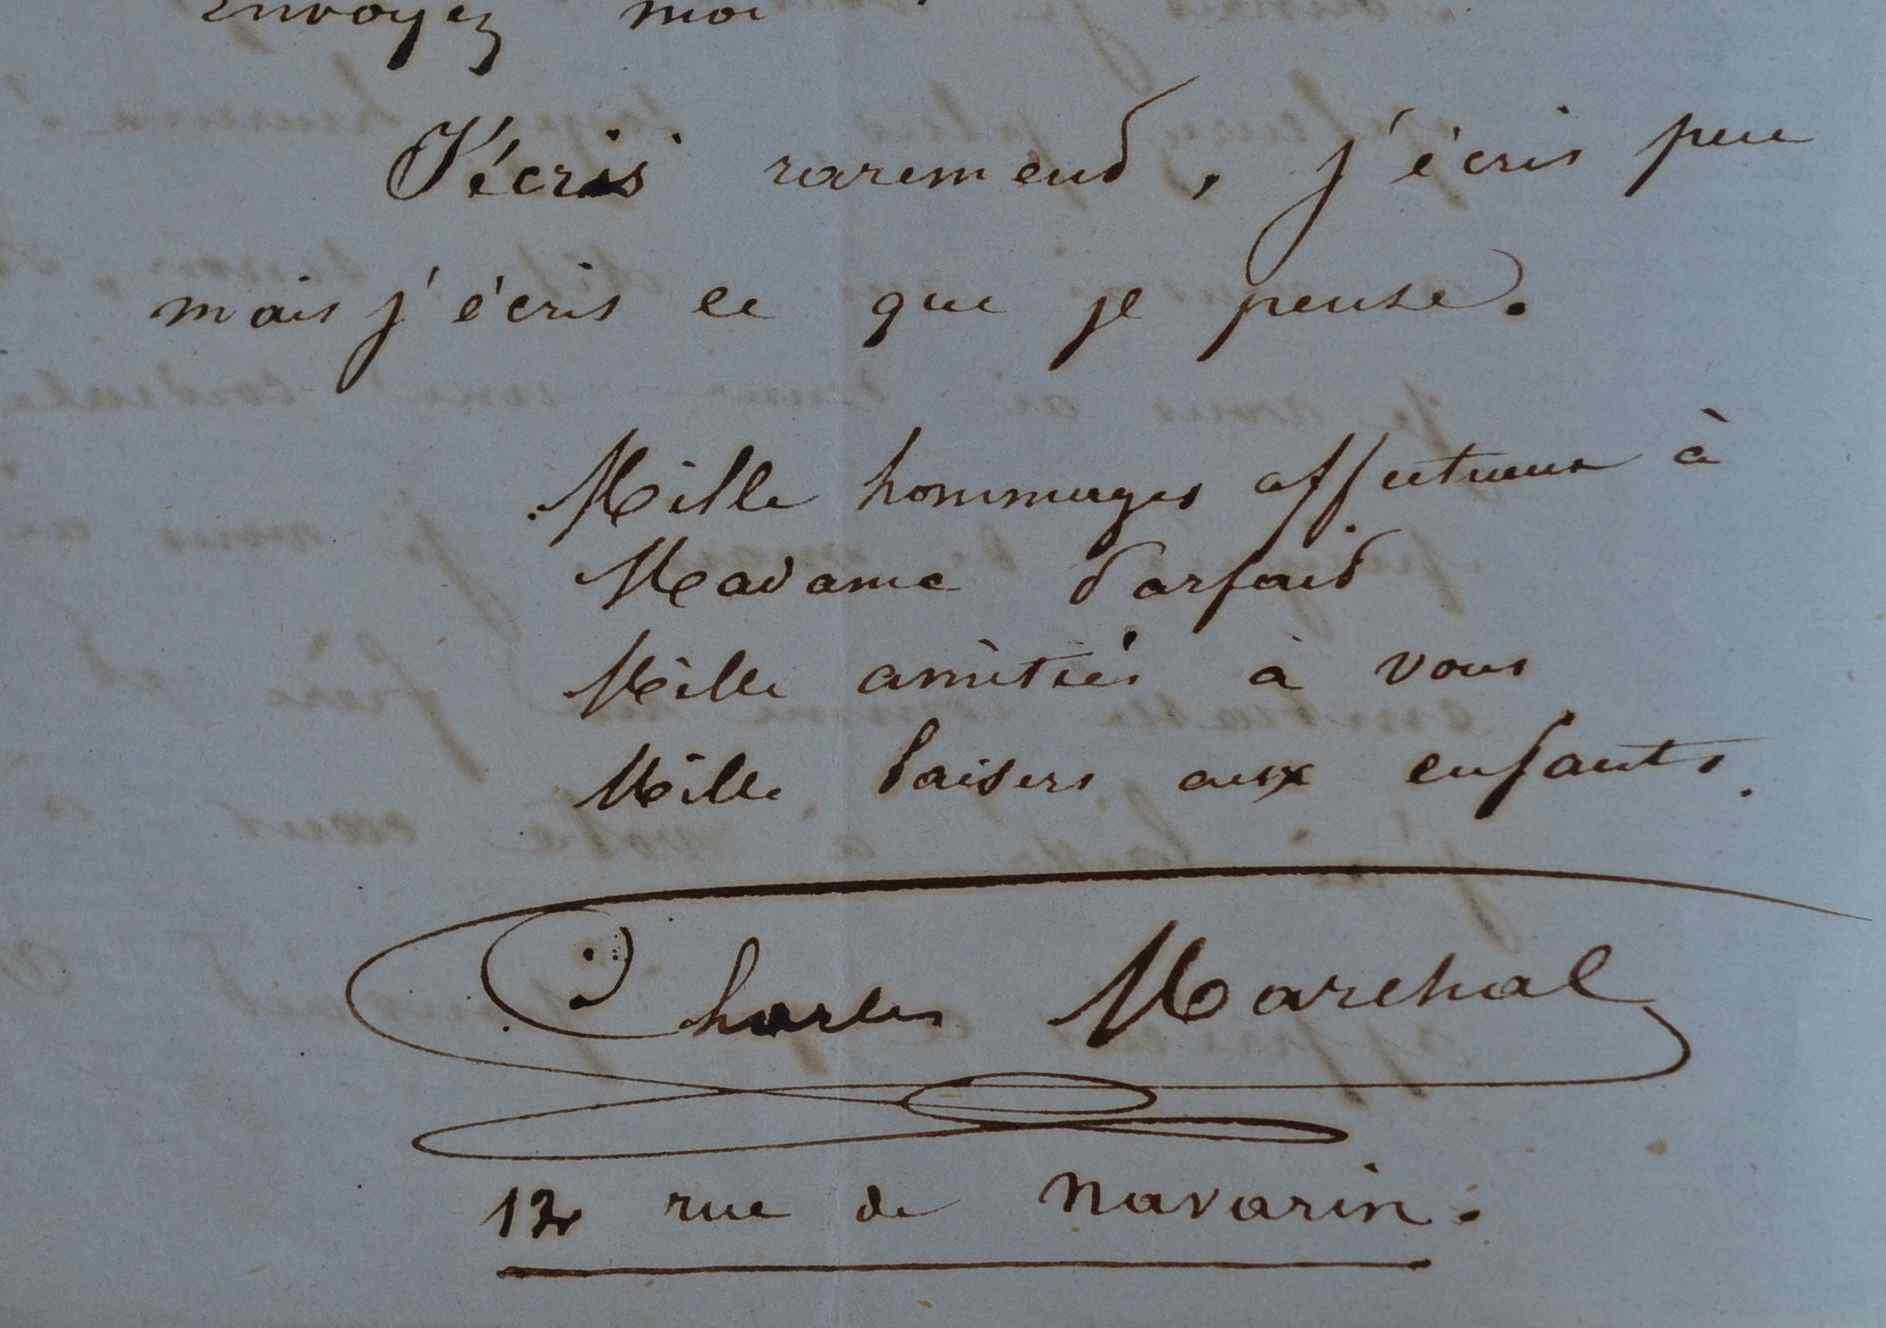 envoyez moi
J'écris rarement, j'écris peu
mais j'écris ce que je pense.
Mille hommages affectueux à
Madame Parfait
Mille amitiés à vous
Mille baisers aux enfants.
Charles Marchal
12 rue de Navarin.